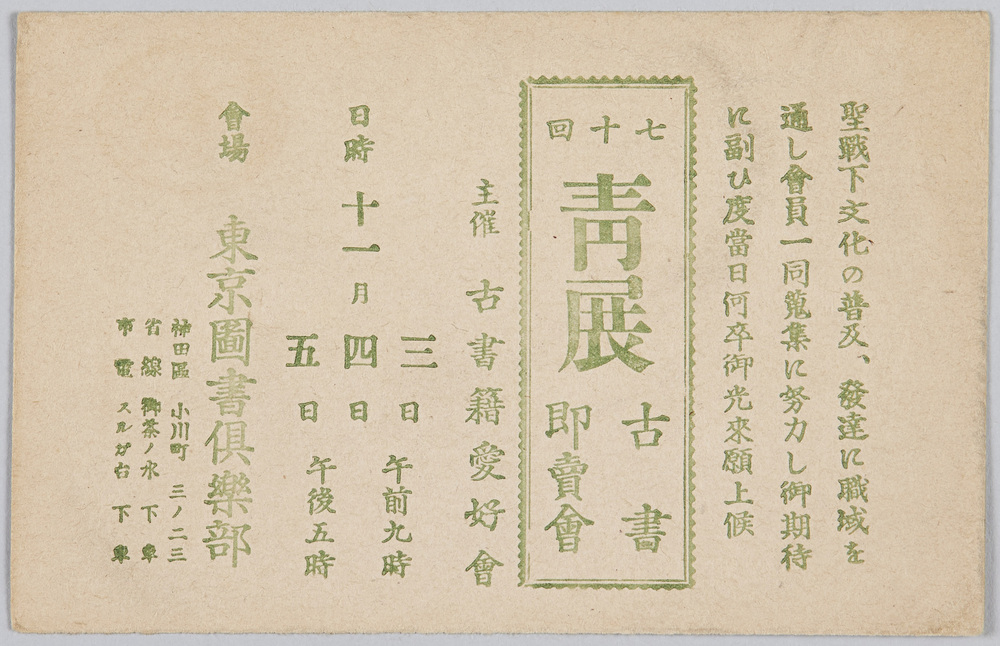 聖戰下文化の普及、發達に職域を
通し會員一同蒐集に努力し御期待
に副ひ度當日何卒御光來願上候
七十回
靑展
古書
即賣會
主催 古書籍愛好會
日時 十一月 三日 四日 五日 午前九時 午後五時
會場 東京圖書俱樂部
神田區 小川町 三ノ二三
省線 御茶ノ水 下車
市電 スルガ台 下車